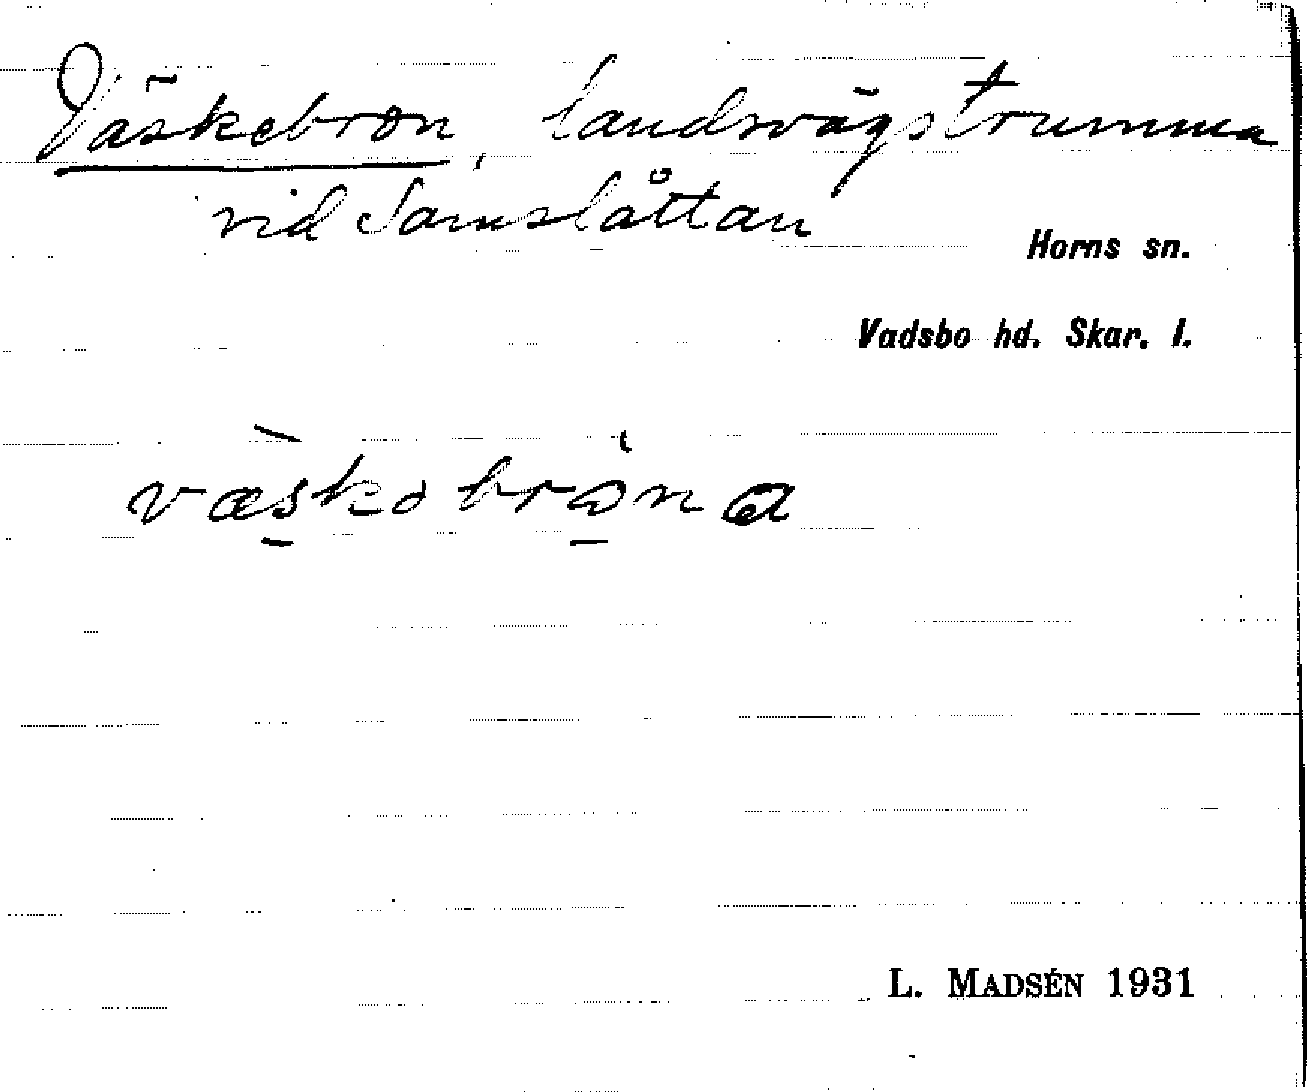 Väskebron, landsvägstrumma
vid Samslåttan
Horns sn.
Vadsbo hd. Skar. l.
væskəbròna
L. MADSÉN 1931